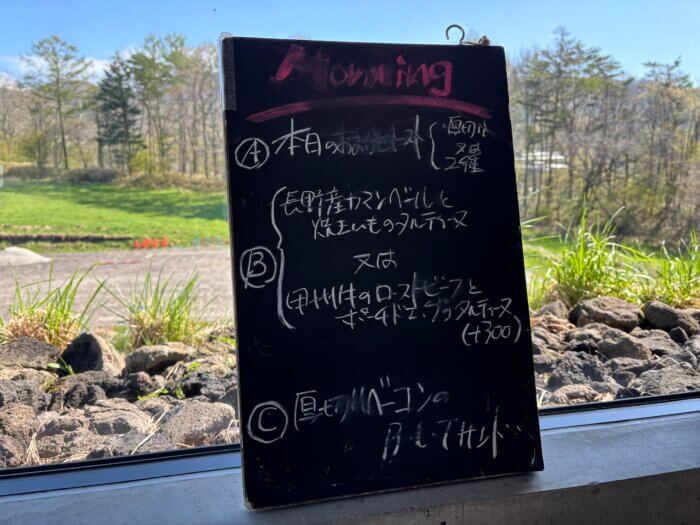 Morning
Ⓐ 本日のおまかせトースト { 厚切り
又は
2種
Ⓑ { 長野産カマンベールと
焼きいものタルティーヌ
又は
甲州牛のローストビーフと
ポーチドエッグタルティーヌ
(+300)
Ⓒ 厚切りベーコンの
B.L.Tサンド